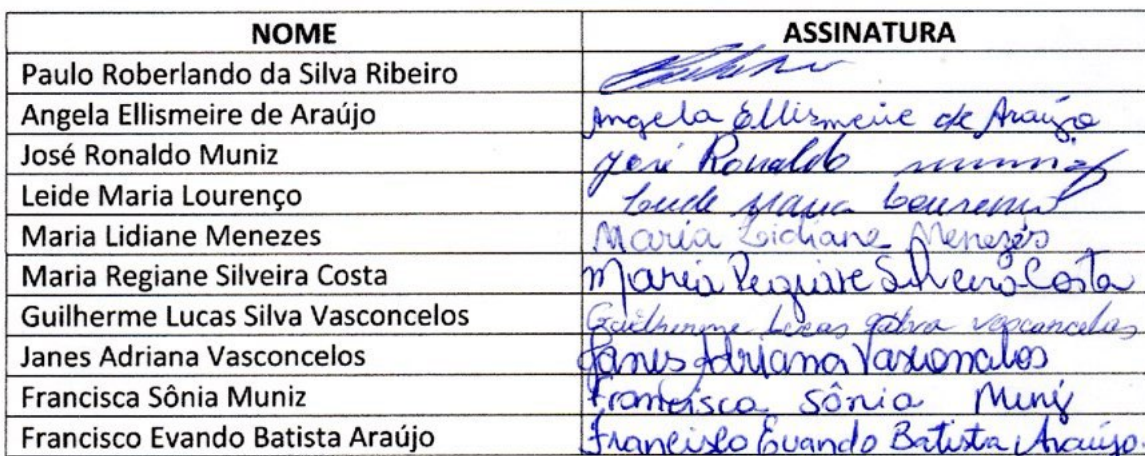 NOME ASSINATURA
Paulo Roberlando da Silva Ribeiro
Angela Ellismeire de Araújo Angela Ellismeire de Araújo
José Ronaldo Muniz José Ronaldo Muniz
Leide Maria Lourenço Leide Maria Lourenço
Maria Lidiane Menezes Maria Lidiane Menezes
Maria Regiane Silveira Costa Maria Regiane Silveira Costa
Guilherme Lucas Silva Vasconcelos Guilherme Lucas Silva vasconcelos
Janes Adriana Vasconcelos Janes Adriana Vasconcelos
Francisca Sônia Muniz Francisca Sônia Muniz
Francisco Evando Batista Araújo Francisco Evando Batista Araújo